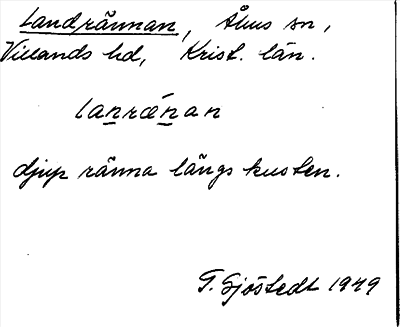 Landrännan, Åhus sn,
Villands hd, Krist. län.
lanrænan
djup ränna längs kusten.
T. Sjöstedt 1949